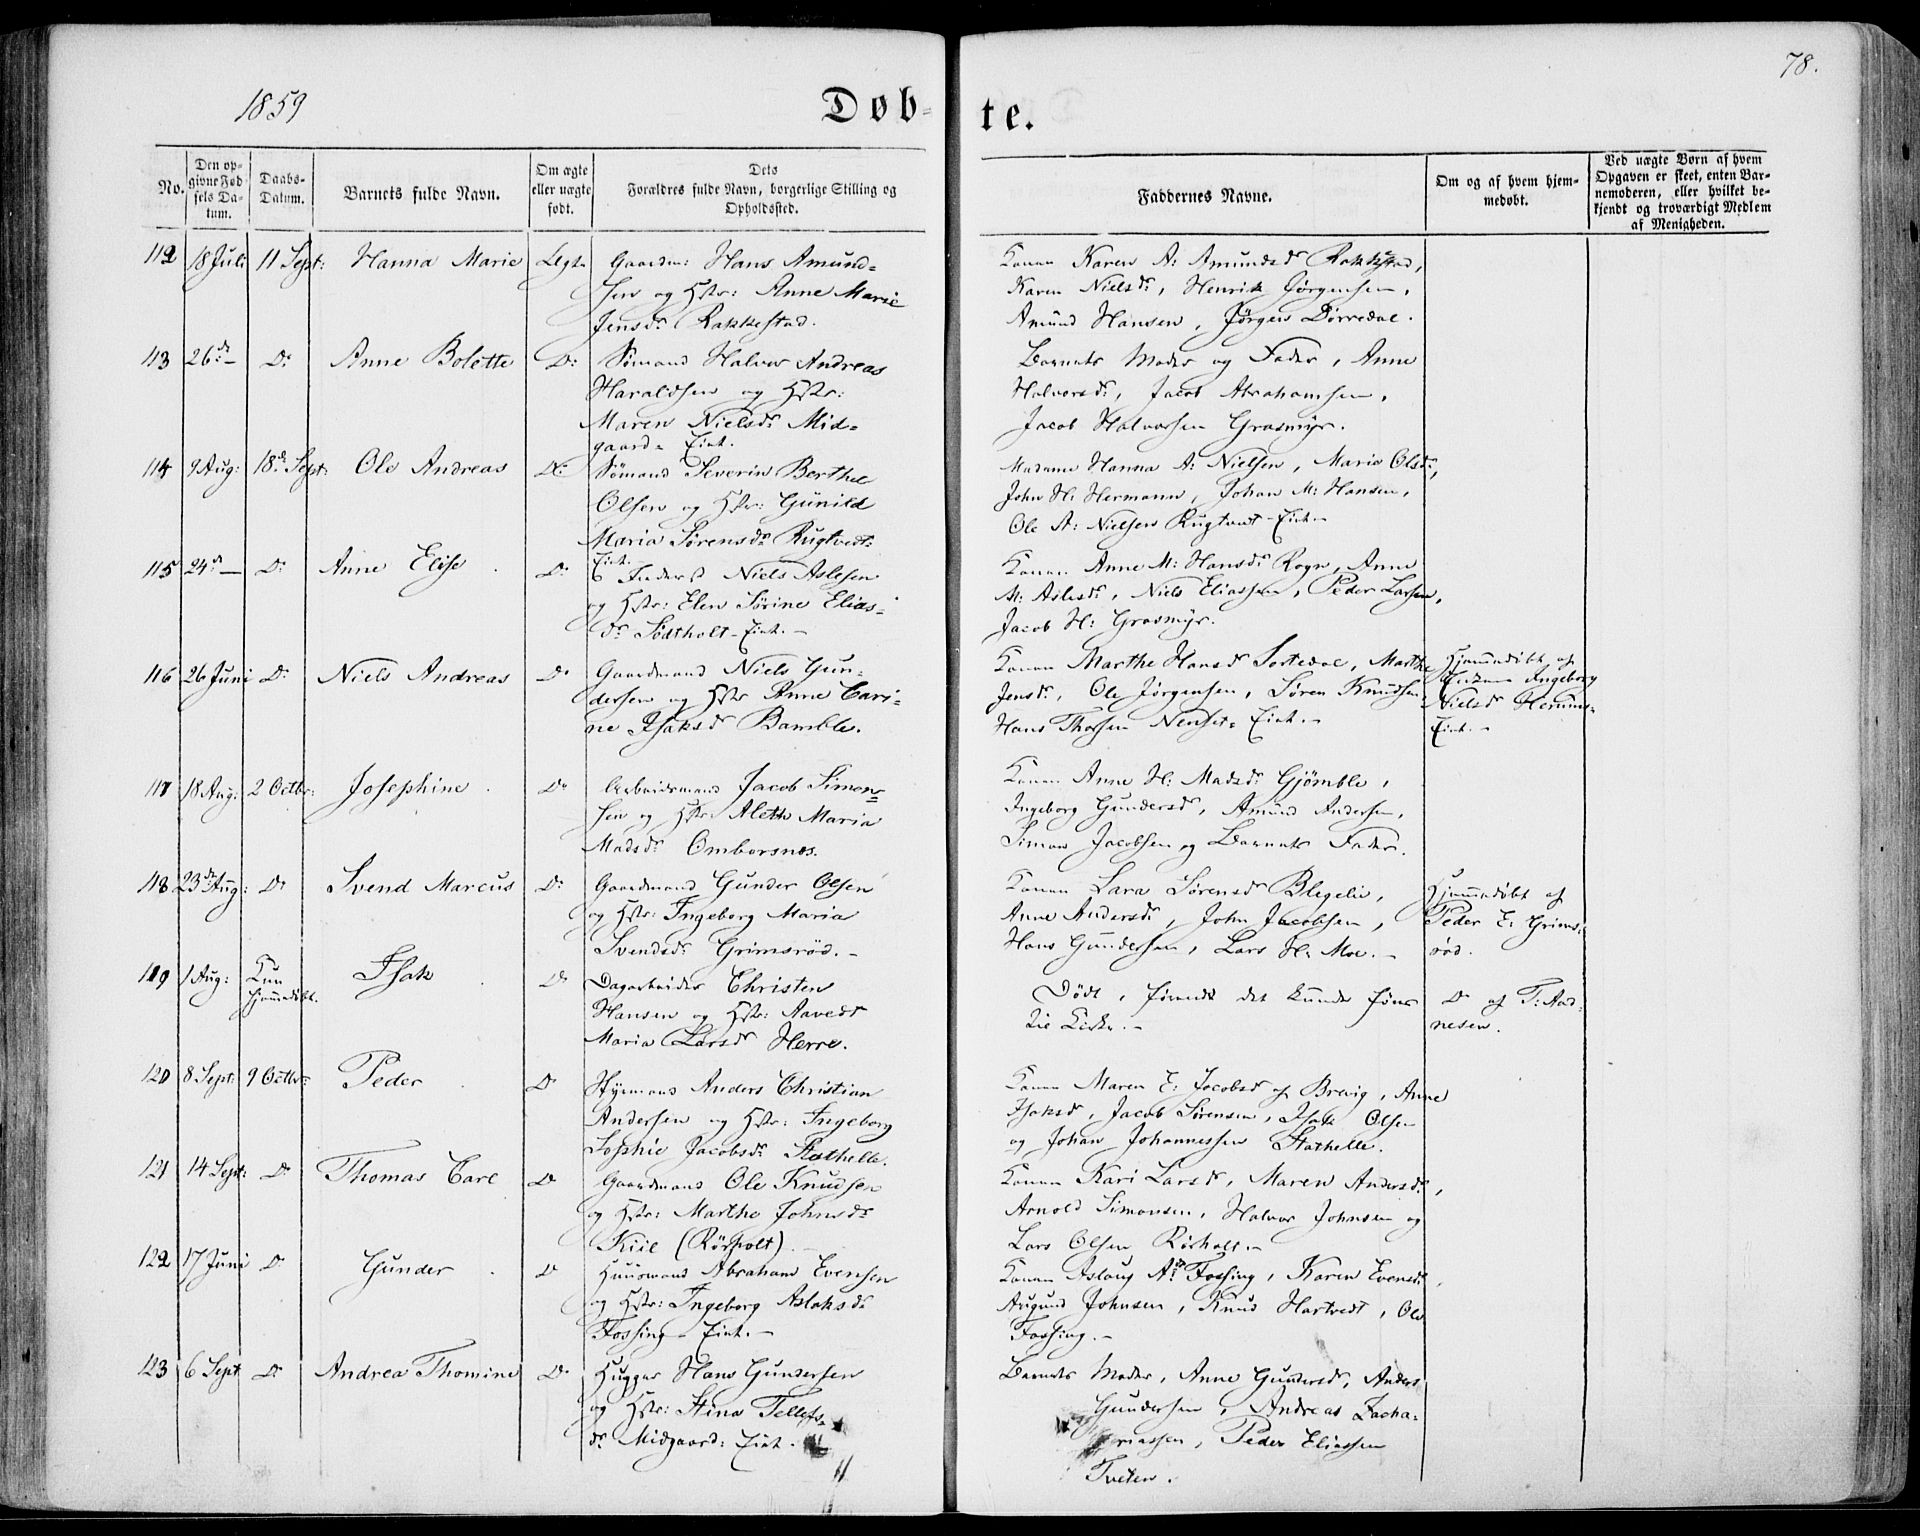 1859
Døb-
te.
78.
No.
Den op-
givne Fød
sels Da-
tum.
Daabs-
Datum.
Barnets fulde Navn.
Om ægte
eller uægte
født.
Dets
Forældres fulde Navn, borgerlige Stilling og
Opholdssted.
Faddernes Navne.
Om og af hvem hjem-
medøbt.
Ved uægte Børn af hvem
Opgaven er skeet, enten Bar-
nemoderen, eller hvilket be-
kjendt og troværdigt Medlem
af Menigheden.
112 18 Juli 11 Sept: Hanna Marie Ægte Gaardm: Hans Amund-
sen og Hstr: Anne Marie
Jensdr Rakkestad.
Konen Karen A: Amundsdr Rakkestad,
Karen Nielsdr, Henrik Jørgensen,
Amund Hansen, Jørgen Dørredal.
113 26de — Do Anne Bolette Do: Sømand Halvor Andreas
Haraldsen og Hstr:
Maren Nielsdr Mid-
gaard- Eiet.
Barnets Moder og Fader, Anne
Halvorsdr, Jacob Abrahamsen,
Jacob Halvorsen Grasmyr.
114 9 Aug: 18de Sept: Ole Andreas Do: Sømand Severin Berthel
Olsen og Hstr: Gunild
Maria Sørensdr Rugtvedt-
Eiet.
Madame Hanna A: Nielsen, Maria Olsdr,
John H: Hermann, Johan M: Hansen,
Ole A: Nielsen Rugtvedt-Eiet.-
115 24de — Do Anne Elise Do Niels Aslesen
og Hstr: Elen Sørine Elias-
dr Södtholt-Eiet.—
Konen Anne M: Hansdr Rogn, Anne
M: Aslesdr, Niels Eliassen, Peder Larsen,
Jacob H: Grasmyr.
116 26 Juni Do Niels Andreas Do Gaardmand Niels Gun-
dersen og Hstr Anne Cari-
ne Isaksdr Bamble.
Konen Marthe Hansdr Sortedal, Marthe
Jensdr, Ole Jørgensen, Søren Knudsen,
Hans Thorsen Nenset- Eiet.-
Hjemmedøbt af
Ingeborg
Nielsdr Herums-
Eiet.-
117 18 Aug: 2 Octbr: Josephine. Do Arbeidsmand Jacob Simon-
sen og Hstr: Aleth Maria
Madsdr Omborsnes.
Konen Anne H: Madsdr Gjömble,
Ingeborg Gundersdr, Amund Andersen,
Simon Jacobsen og Barnets Fader.
118 23de Aug: Do Svend Marcus Do: Gaardmand Gunder Olsen
og Hstr: Ingeborg Maria
Svendsdr Grimsrød.-
Konen Lara Sørensdr Blegeli,
Anne Andersdr, John Jacobsen,
Hans Gundersen, Lars H: Moe.-
Hjemmedøbt af
Peder E: Grims-
rød.
119 1 Aug: Kun
hjemmedøbt. Isak Do Dagarbeider Christen
Hansen og Hstr: Aavedt
Maria Larsdr Herre.
Dødt, førend det kunde føres
til Kirke.-
Do af T: Aad-
nesen.
120 8 Sept: 9 Octbr: Peder Do Styrmand Anders Christian
Andersen og Hstr: Ingeborg
Sophie Jacobsdr Stathelle.
Konen Maren E: Jacobsd af Brevig, Anne
Isaksdr, Jacob Sørensen, Isak Olsen
og Johan Johannessen Stathelle.
121 14 Sept: Do Thomas Carl Do Gaardmand Ole Knudsen
og Hstr: Marthe Johnsdr
Kiil (Rørholt).
Konen Kari Larsdr, Maren Andersdr,
Arnold Simonsen, Halvor Johnsen og
Lars Olsen Rörholt.-
122 17 Juni Do Gunder Do Huusmand Abraham Evensen
og Hstr: Ingeborg Aslaksdr
Fossing - Eiet.-
Konen Aslaug A: Fossing, Karen Evensdr,
Augund Johnsen, Knud Hartvedt, Ole
Fossing.-
123 6 Sept Do Andrea Thomine Do Hugger Hans Gundersen
og Hstr: Stina Tellefs-
dr Midgaard: Eiet.
Barnets Moder, Anne Gundersdr, Anders
Gundersen, Andreas Zacha-
riassen, Peder Eliassen
Tveten.